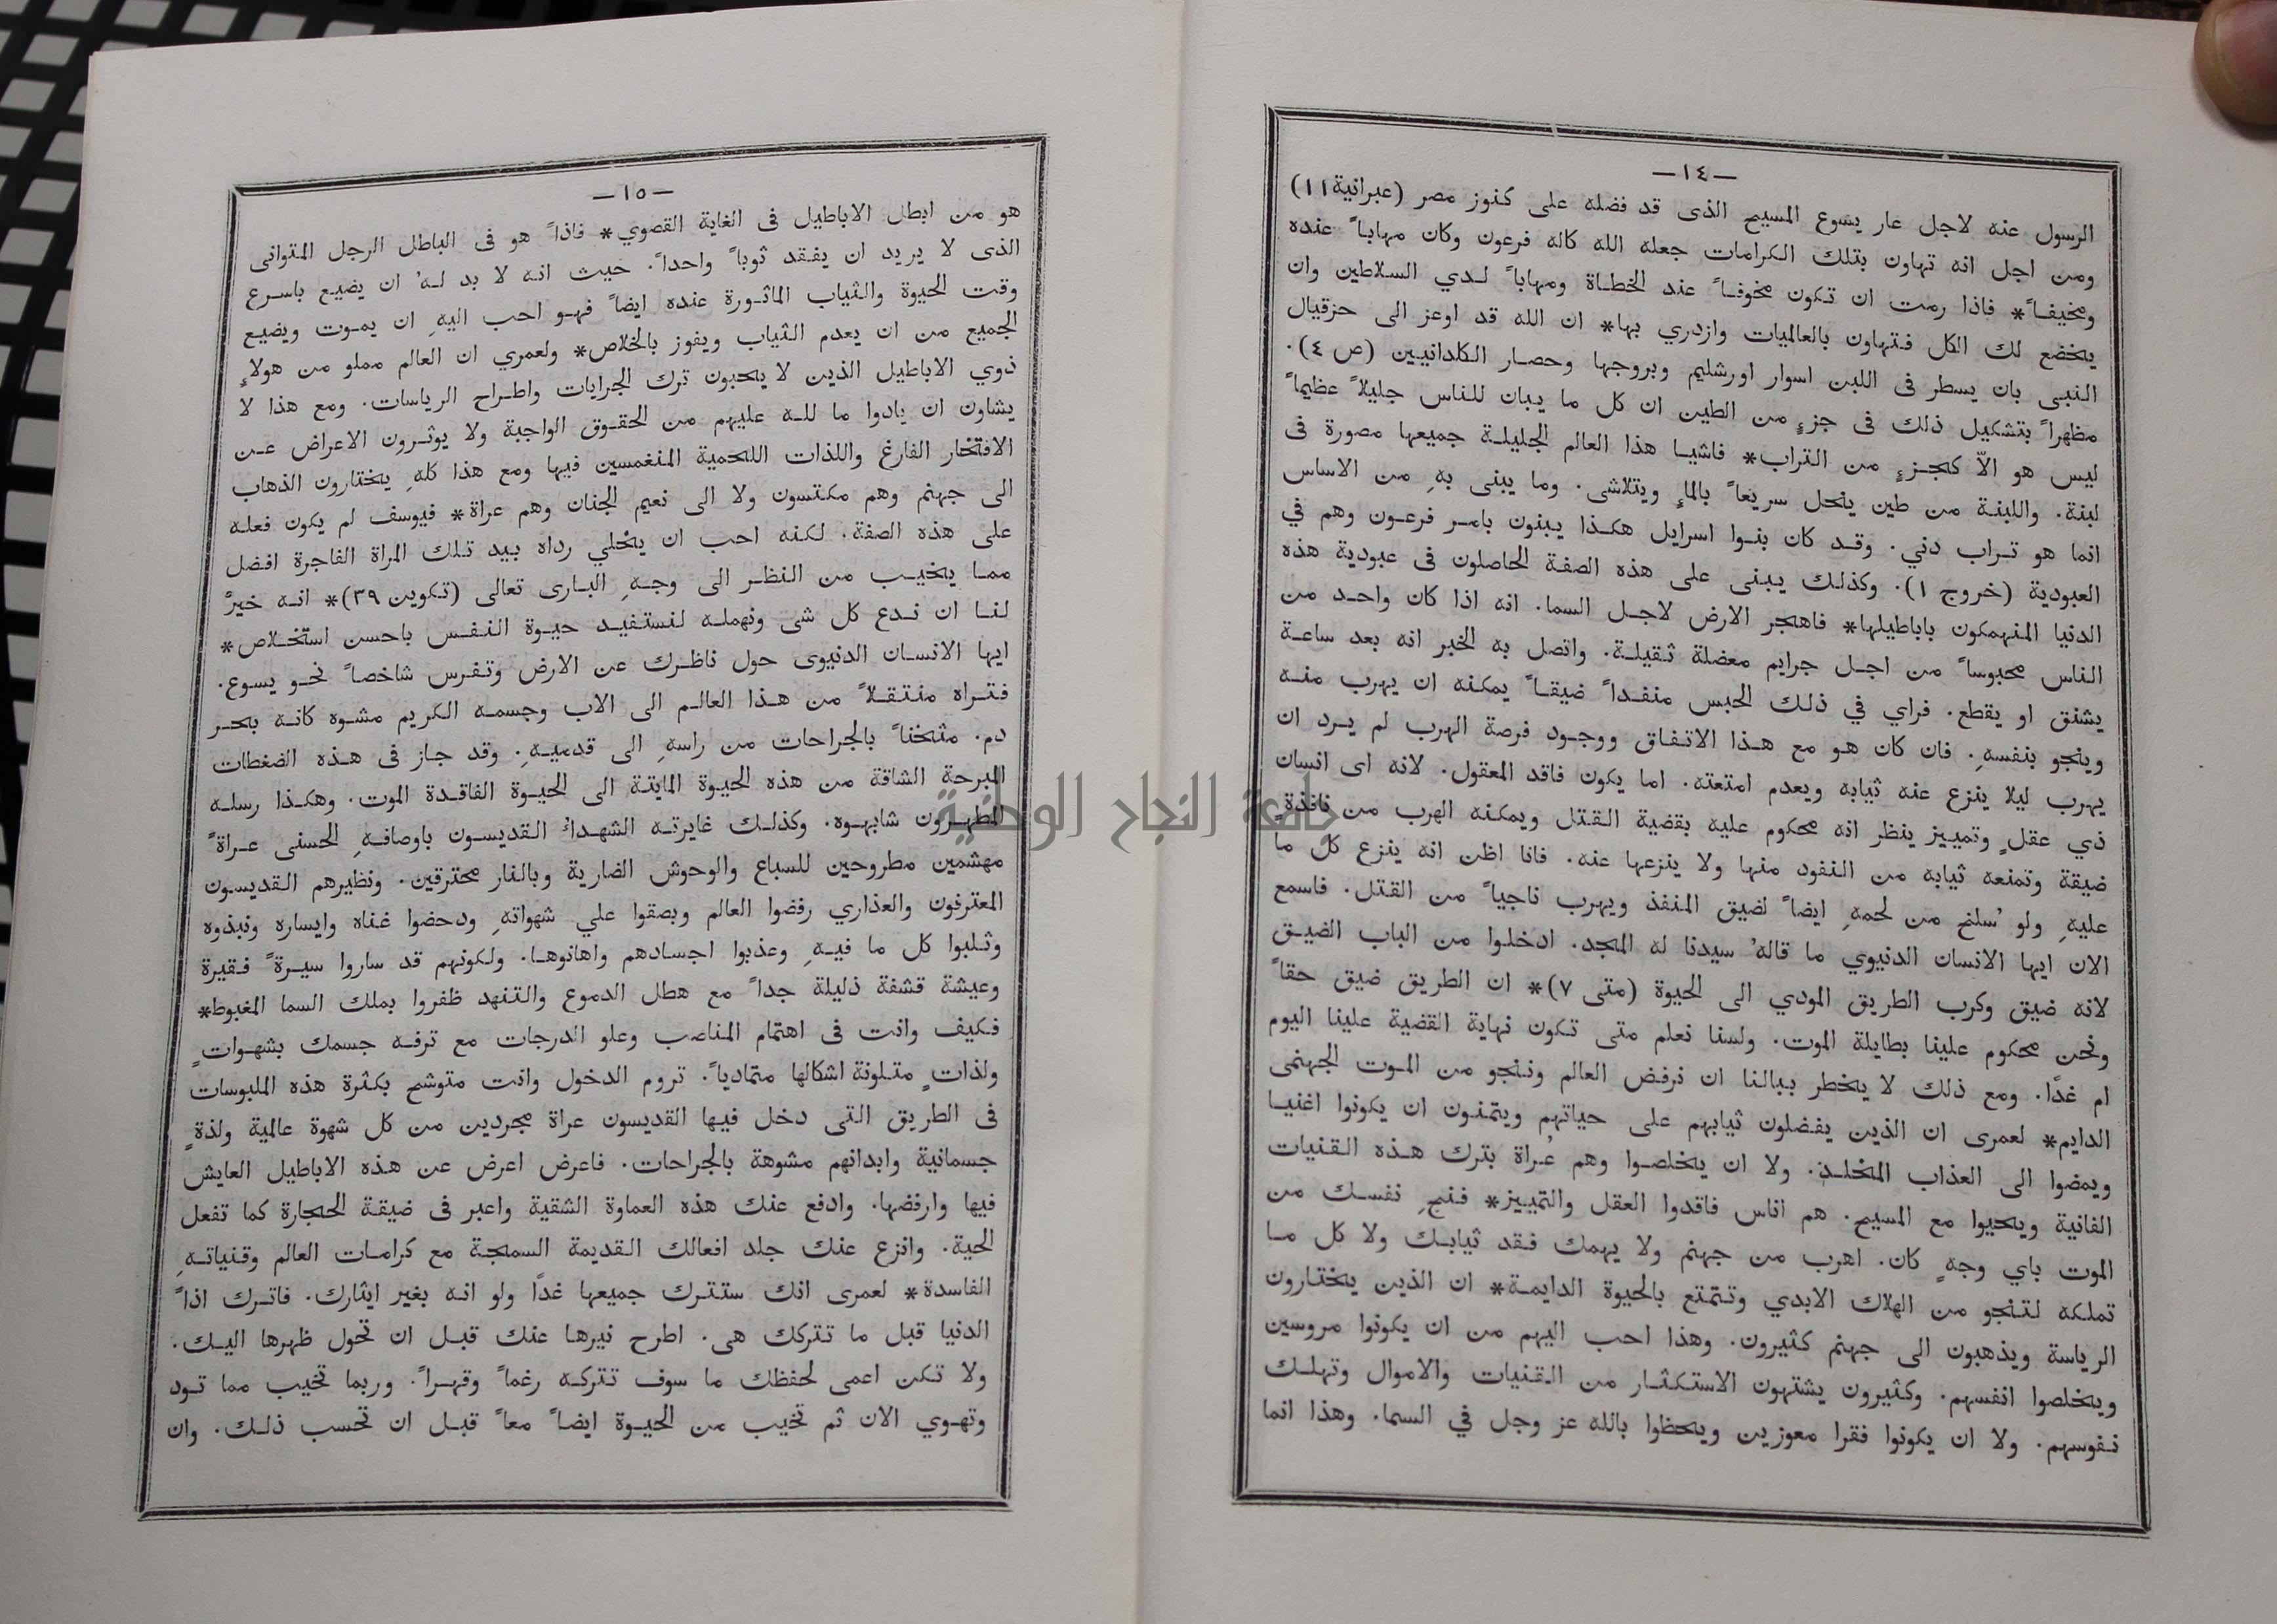 —١٤—
الرسول عنه لاجل عار يسوع المسيح الذى قد فضله على كنوز مصر (عبرانية١١)
ومن اجل انه تهاون بتلك الكرامات جعله الله كاله فرعون وكان مهاباً عنده
ومخيفاً* فاذا رمت ان تكون مخوفاً عند الخطاة ومهاباً لدي السلاطين وان
يخضع لك الكل فتهاون بالعالميات وازدري بها* ان الله قد اوعز الى حزقيال
النبى بان يسطر فى اللبن اسوار اورشليم وبروجها وحصار الكلدانيين (ص ٤)٠
مظهراً بتشكيل ذلك فى جزءٍ من الطين ان كل ما يبان للناس جليلاً عظيماً
ليس هو الاّ كجزءٍ من التراب* فاشيا هذا العالم الجليلة جميعها مصورة فى
لبنة٠ واللبنة من طين ينحل سريعاً بالماءٍ ويتلاشى٠ وما يبنى بهِ من الاساس
انما هو تراب دني٠ وقد كان بنوا اسرايل هكذا يبنون بامر فرعون وهم في
العبودية (خروج ١)٠ وكذلك يبنى على هذه الصفة الحاصلون فى عبودية هذه
الدنيا المنهمكون باباطيلها* فاهجر الارض لاجل السما٠ انه اذا كان واحد من
الناس محبوساً من اجل جرايم معضلة ثقيلة٠ واتصل به الخبر انه بعد ساعة
يشنق او يقطع٠ فراي في ذلك الحبس منفداً ضيقاً يمكنه ان يهرب منه
وينجو بنفسهِ٠ فان كان هو مع هذا الاتفاق ووجود فرصة الهرب لم يرد ان
يهرب ليلا ينزع عنه ثيابه ويعدم امتعته٠ اما يكون فاقد المعقول٠ لانه اى انسان
ذي عقلٍ وتمييز ينظر انه محكوم عليه بقضية القتل ويمكنه الهرب من نافذةٍ
ضيقة وتمنعه ثيابه من النفود منها ولا ينزعها عنه٠ فانا اظن انه ينزع كل ما
عليهِ ولو ُسلخ من لحمهِ ايضاً لضيق المنفذ ويهرب ناجياً من القتل٠ فاسمع
الان ايها الانسان الدنيوي ما قالهُ سيدنا له المجد٠ ادخلوا من الباب الضيق
لانه ضيق وكرب الطريق المودي الى الحيوة (متى ٧)* ان الطريق ضيق حقاً
ونحن محكوم علينا بطايلة الموت٠ ولسنا نعلم متى تكون نهاية القضية علينا اليوم
ام غدًا٠ ومع ذلك لا يخطر ببالنا ان نرفض العالم وننجو من الموت الجهنمى
الدايم* لعمرى ان الذين يفضلون ثيابهم على حياتهم ويتمنون ان يكونوا اغنيا
ويمضوا الى العذاب المخلد٠ ولا ان يخلصوا وهم عُراة بترك هذه القنيات
الفانية ويحيوا مع المسيح٠ هم اناس فاقدوا العقل والتمييز* فنجِ نفسك من
الموت باي وجهٍ كان٠ اهرب من جهنم ولا يهمك فقد ثيابك ولا كل ما
تملكه لتنجو من الهلاك الابدي وتتمتع بالحيوة الدايمة* ان الذين يختارون
الرياسة ويذهبون الى جهنم كثيرون٠ وهذا احب اليهم من ان يكونوا مروسين
ويخلصوا انفسهم٠ وكثيرون يشتهون الاستكثار من القنيات والاموال وتهلك
نفوسهم٠ ولا ان يكونوا فقرا معوزين ويحظوا بالله عز وجل في السما٠ وهذا انما
—١٥—
هو من ابطل الاباطيل فى الغاية القصوي* فاذاً هو فى الباطل الرجل المتوانى
الذى لا يريد ان يفقد ثوباً واحداً٠ حيث انه لا بد لهُ ان يضيع باسرع
وقت الحيوة والثياب الماثورة عنده ايضاً فهو احب اليهِ ان يموت ويضيع
الجميع من ان يعدم الثياب ويفوز بالخلاص* ولعمري ان العالم مملو من هولاءٍ
ذوي الاباطيل الذين لا يحبون ترك الجرايات واطراح الرياسات٠ ومع هذا لا
يشاون ان يادوا ما لله عليهم من الحقوق الواجبة ولا يوثرون الاعراض عن
الافتخار الفارغ واللذات اللحمية المنغمسين فيها ومع هذا كلهِ يختارون الذهاب
الى جهنم وهم مكتسون ولا الى نعيم الجنان وهم عراة* فيوسف لم يكون فعله
على هذه الصفة٠ لكنه احب ان يخلي رداه بيد تلك المراة الفاجرة افضل
مما يخيب من النظر الى وجهِ البارى تعالى (تكوين ٣٩)* انه خيرٌ
لنا ان ندع كل شى ونهمله لنستفيد حيوة النفس باحسن استخلاص*
ايها الانسان الدنيوى حول ناظرك عن الارض وتفرس شاخصاً نحو يسوع٠
فتراه منتقلاً من هذا العالم الى الاب وجسمه الكريم مشوه كانه بحر
دم٠ مثخناً بالجراحات من راسهِ الى قدميهِ٠ وقد جاز فى هذه الضغطات
المبرحة الشاقة من هذه الحيوة المايتة الى الحيوة الفاقدة الموت٠ وهكذا رسله
المطهرون شابهوه٠ وكذلك غايرته الشهداءُ القديسون باوصافهِ الحسنى عراةً
مهشمين مطروحين للسباع والوحوش الضارية وبالنار محترقين٠ ونظيرهم القديسون
المعترفون والعذاري رفضوا العالم وبصقوا علي شهواتهِ ودحضوا غناه وايساره ونبذوه
وثلبوا كل ما فيهِ وعذبوا اجسادهم واهانوها٠ ولكونهم قد ساروا سيرةً فقيرة
وعيشة قشفة ذليلة جداً مع هطل الدموع والتنهد ظفروا بملك السما المغبوط*
فكيف وانت فى اهتمام المناصب وعلو الدرجات مع ترفه جسمك بشهواتٍ
ولذاتٍ متلونة اشكالها متمادياً٠ تروم الدخول وانت متوشح بكثرة هذه الملبوسات
فى الطريق التى دخل فيها القديسون عراة مجردين من كل شهوة عالمية ولذةٍ
جسمانية وابدانهم مشوهة بالجراحات٠ فاعرض اعرض عن هذه الاباطيل العايش
فيها وارفضها٠ وادفع عنك هذه العماوة الشقية واعبر فى ضيقة الحجارة كما تفعل
الحية٠ وانزع عنك جلد افعالك القديمة السمجة مع كرامات العالم وقنياتهِ
الفاسدة* لعمرى انك ستترك جميعها غدًا ولو انه بغير ايثارك٠ فاترك اذاً
الدنيا قبل ما تتركك هى٠ اطرح نيرها عنك قبل ان تحول ظهرها اليك٠
ولا تكن اعمى لحفظك ما سوف تتركه رغماً وقهراً٠ وربما تخيب مما تود
وتهوي الان ثم تخيب من الحيوة ايضاً معاً قبل ان تحسب ذلك٠ وان
جامعة النجاح الوطنية